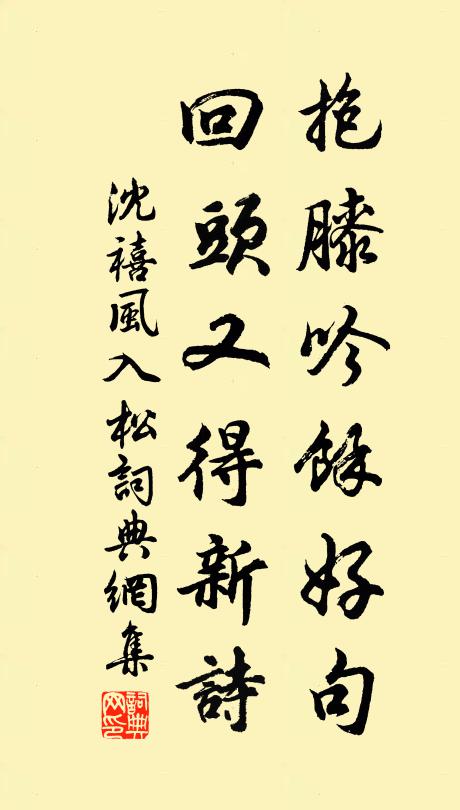 抱膝吟餘好句
回頭又得新詩
沈禧風入松詞典網集
詞典網印